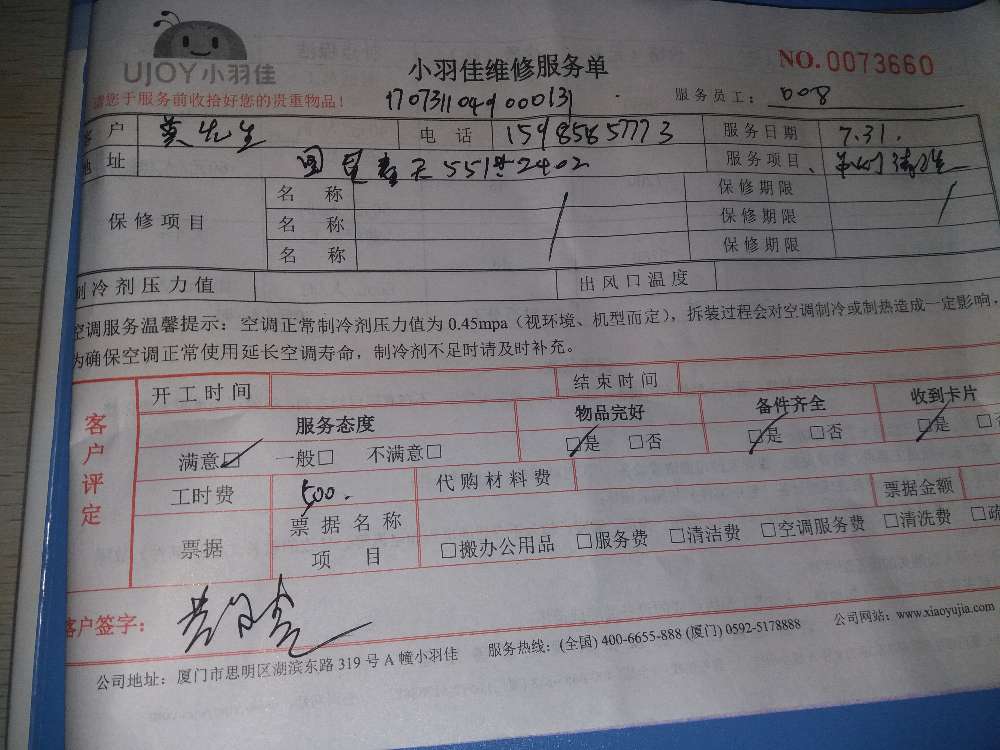 UJOY小羽佳
小羽佳维修服务单
NO.0073660
请您于服务前收拾好您的贵重物品!
1707311049000131
服务员工: 008
客户 黄先生 电话 15985857773 服务日期 7.31.
地址 国贸春天551#2402 服务项目
保修项目
名称 保修期限
名称 保修期限
名称 保修期限
制冷剂压力值 出风口温度
空调服务温馨提示:空调正常制冷剂压力值为0.45mpa(视环境、机型而定),拆装过程会对空调制冷或制热造成一定影响,
为确保空调正常使用延长空调寿命,制冷剂不足时请及时补充。
客户评定
开工时间 结束时间
服务态度 物品完好 备件齐全 收到卡片
满意□ 一般□ 不满意□ □是 □否 □是 □否 □是 □否
工时费 500. 代购材料费
票据 票据名称 票据金额
项目 □搬办公用品 □服务费 □清洁费 □空调服务费 □清洗费 □疏
客户签字:
公司地址:厦门市思明区湖滨东路319号A幢小羽佳 服务热线:(全国) 400-6655-888 (厦门) 0592-5178888 公司网站:www.xiaoyujia.com